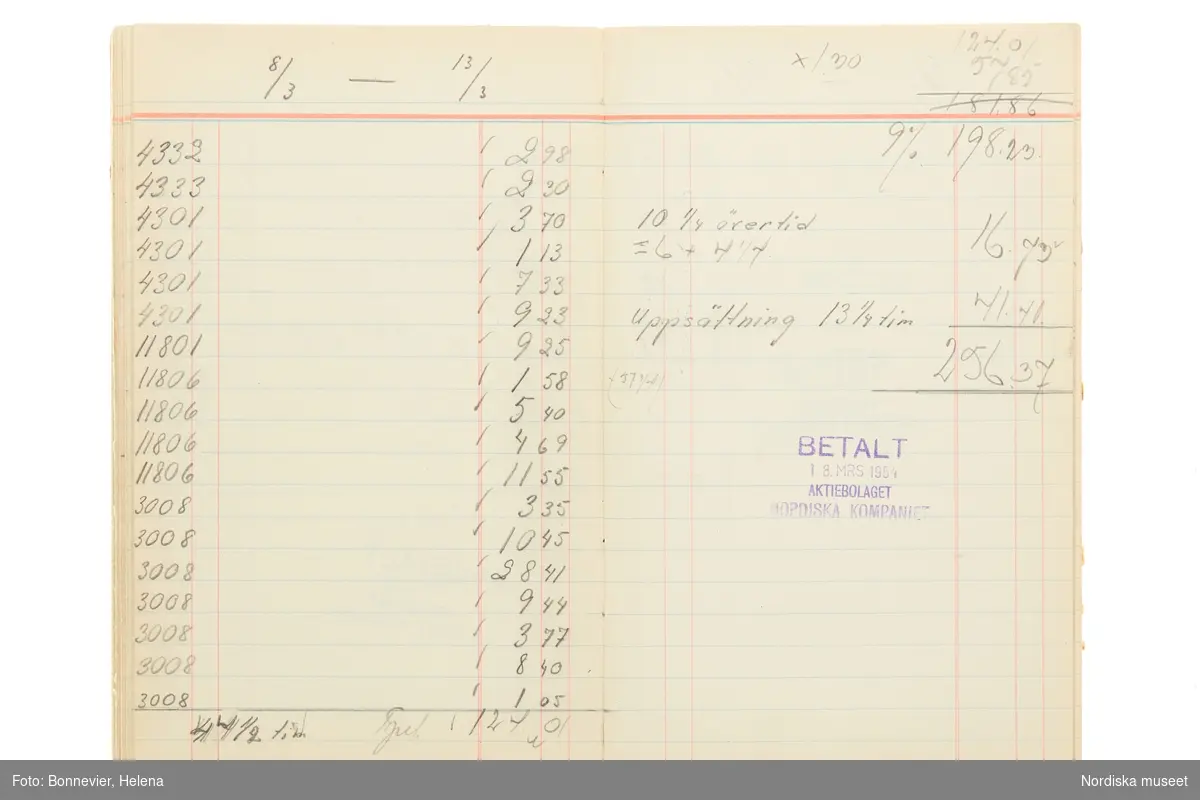 8/3 — 13/3
4332 2 98
4333 2 30
4301 3 70
4301 1 13
4301 7 33
4301 9 23
11801 9 25
11806 1 58
11806 5 40
11806 4 69
11806 11 55
3008 3 35
3008 10 45
3008 28 41
3008 9 44
3008 3 77
3008 8 40
3008 1 05
44 1/2 tim 124 01
124.01
57 85
181.86
9% 198.23
10 1/4 övertid 16.73
=6 + 4 1/4
Uppsättning 13 1/4 tim 41.41
256.37
BETALT
18. MRS 1954
AKTIEBOLAGET
NORDISKA KOMPANIET
Foto: Bonnevier, Helena
Nordiska museet